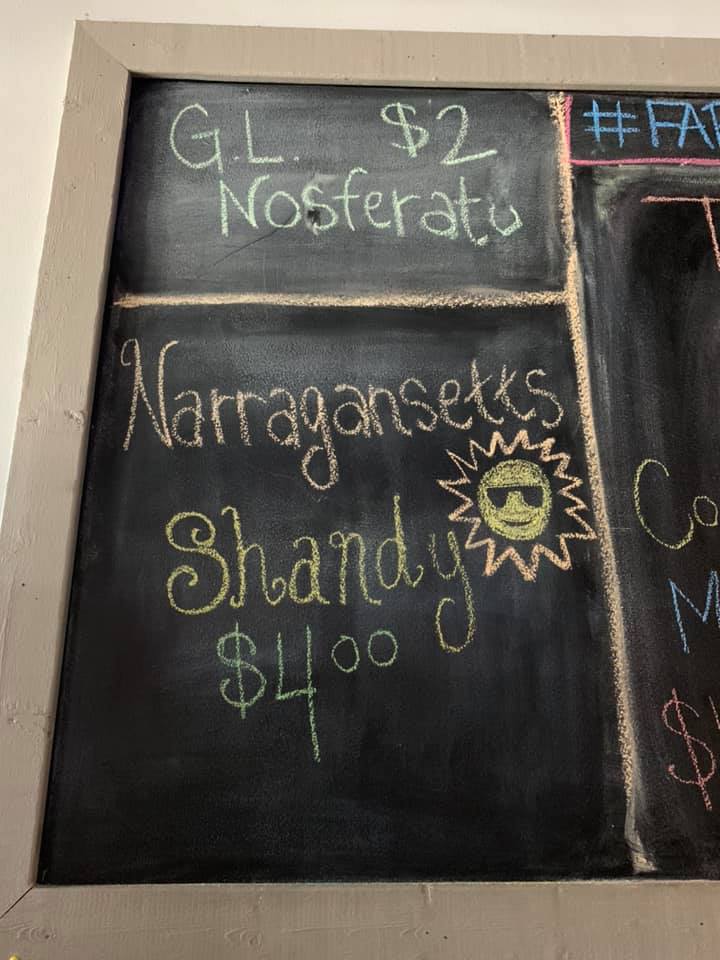 G.L. $2
Nosferatu
Narragansetts
Shandy
$4.00